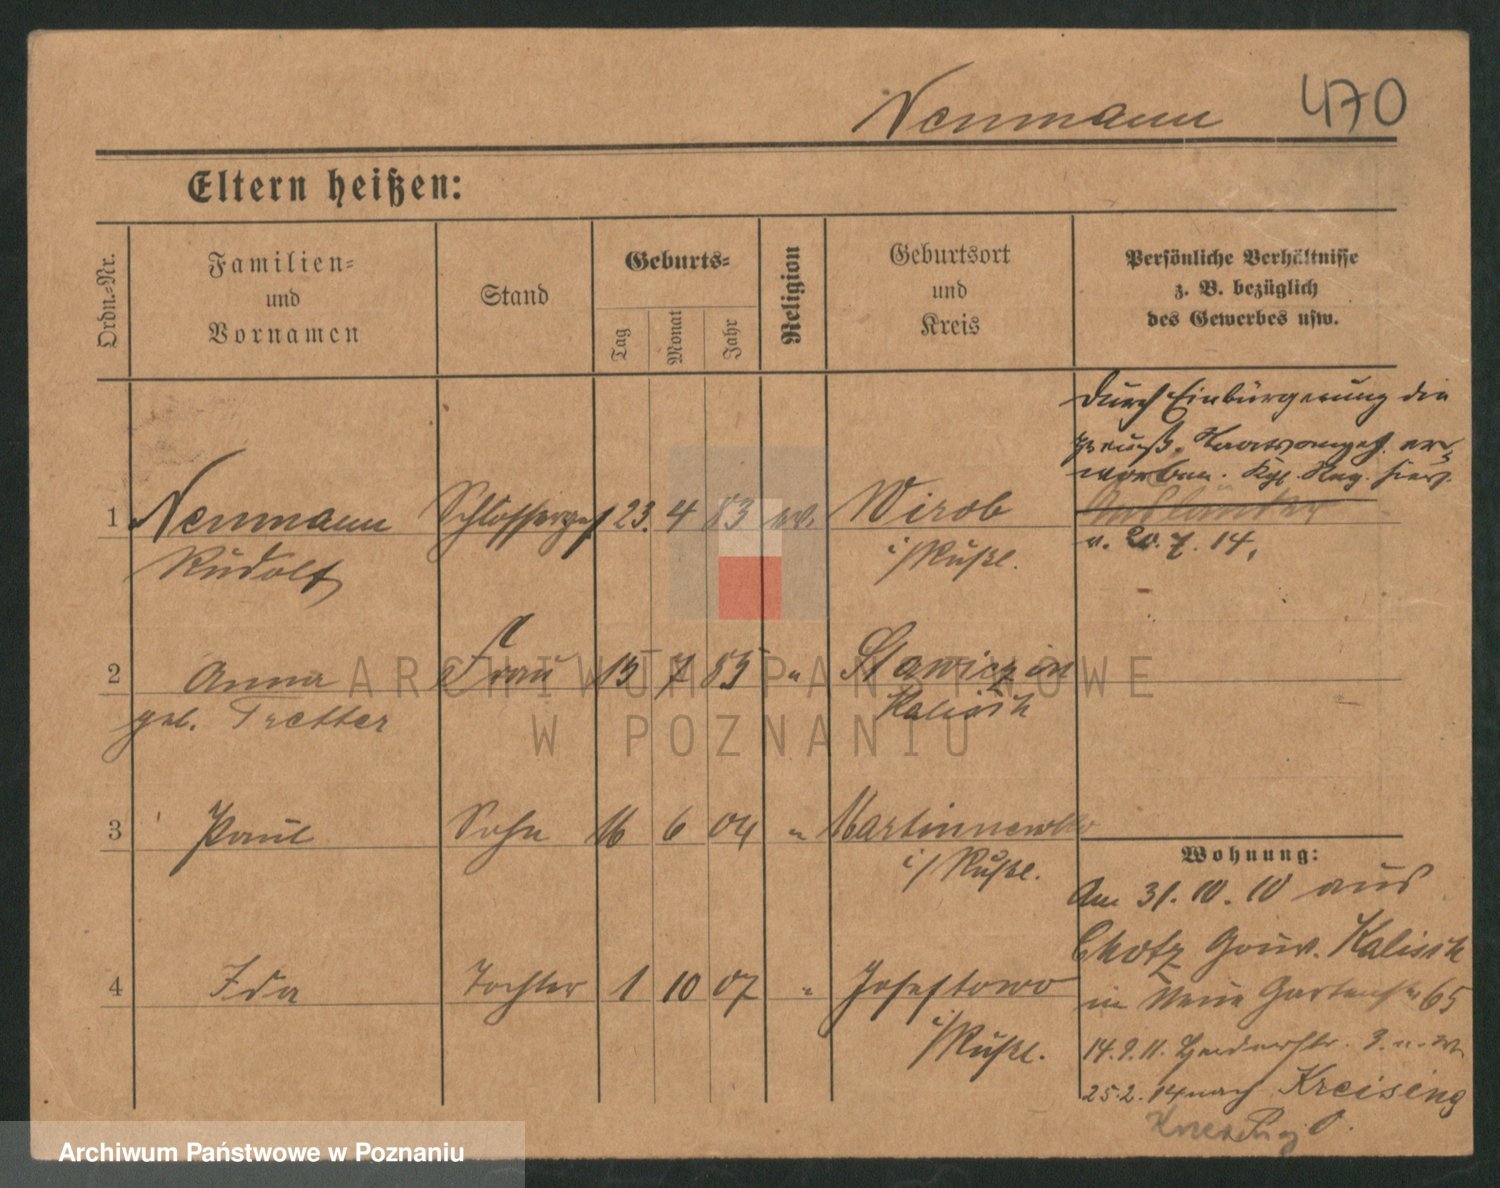 Neumann 470
Eltern heißen:
Ordn.-Nr.
Familien-
und
Vornamen
Stand
Geburts-
Tag
Monat
Jahr
Religion
Geburtsort
und
Kreis
Persönliche Verhältnisse
z. B. bezüglich
des Gewerbes usw.
Durch Einbürgerung die
preuß. Staatsangeh. er-
worben. Kgl. Reg. hier
Ausländer
v. 20. 7. 14.
1 Neumann Schlosserges 23. 4 83 ev. Wirob
Rudolf i/Rußl.
2 Anna Frau 15 7 85 " Stawiczin
geb. Tretter Kalisch
3 Paul Sohn 16 6 04 "
i/Rußl.
Wohnung:
Am 31. 10. 10 aus
Chotz Gouv. Kalisch
in Neue Gartenstr 65
4 Ida Tochter 1 10 07 " Joseftowo
i/Rußl.
14. 9. 11.
25. 2. 14 nach Kreising
ARCHIWUM PAŃSTWOWE
W POZNANIU
Archiwum Państwowe w Poznaniu